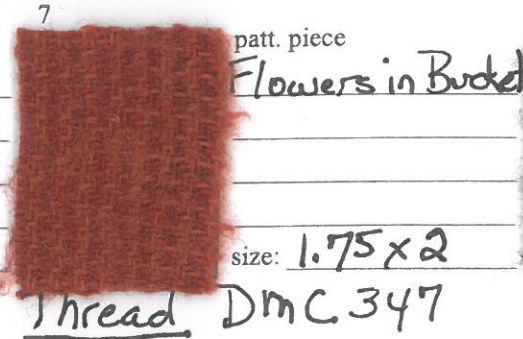 7
patt. piece
Flowers in Bucket
size: 1.75 x 2
Thread DMC 347